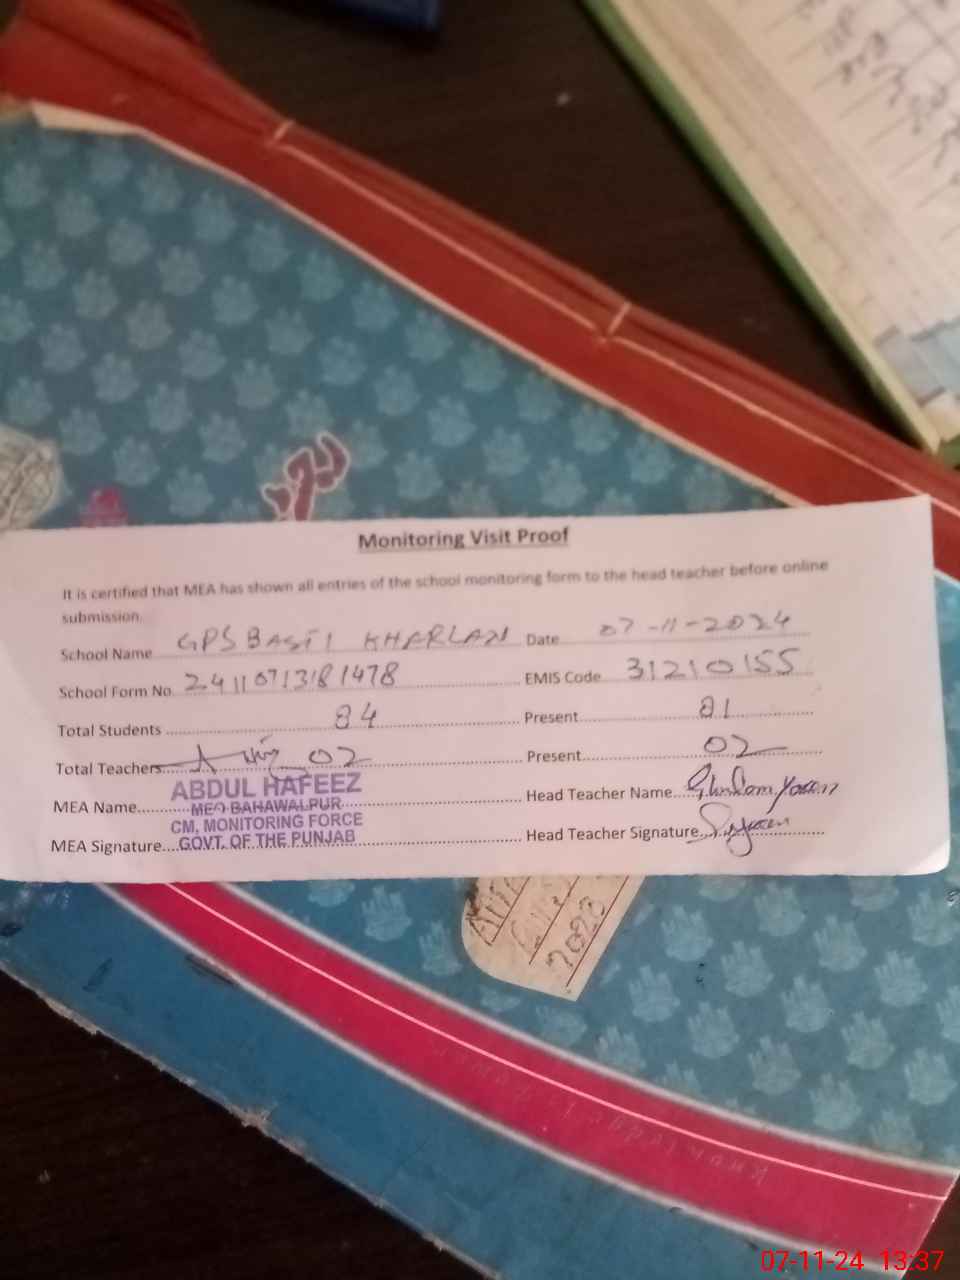 Monitoring Visit Proof
It is certified that MEA has shown all entries of the school monitoring form to the head teacher before online
submission.
School Name GPS BASTI KHARLAN Date 07-11-2024
School Form No. 24110713181478 EMIS Code 31210155
Total Students 84 Present 81
Total Teachers 02 Present 02
ABDUL HAFEEZ
MEA Name MEO BAHAWALPUR Head Teacher Name Ghulam Yaseen
CM, MONITORING FORCE
MEA Signature GOVT. OF THE PUNJAB Head Teacher Signature
2020
Knowledge is power
07-11-24 13:37